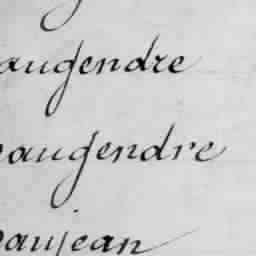 augendre
eaugendre
eaujean